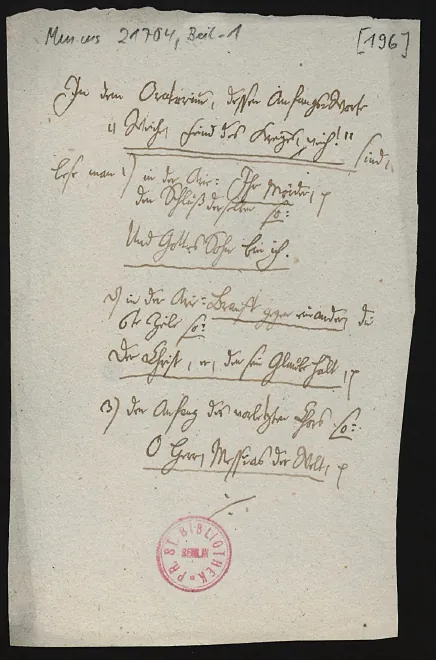 Mus. ms 21704, Beil. 1
[196]
In dem Oratorium, dessen Anfangs-Worte
"Weich, Feind des Kreuzes, weich!" sind,
lese man 1) in der Arie: Ihr Mörder,
den Schluß derselben so:
Und Gottes Sohn bin ich.
2) in der Arie: Braust gegen einander, die
6te Zeile so:
Der Christ, er, den sein Glaube hält,
3) den Anfang des vorletzten Chors so:
O Herr, Messias der Welt,
PR. ST. BIBLIOTHEK
BERLIN